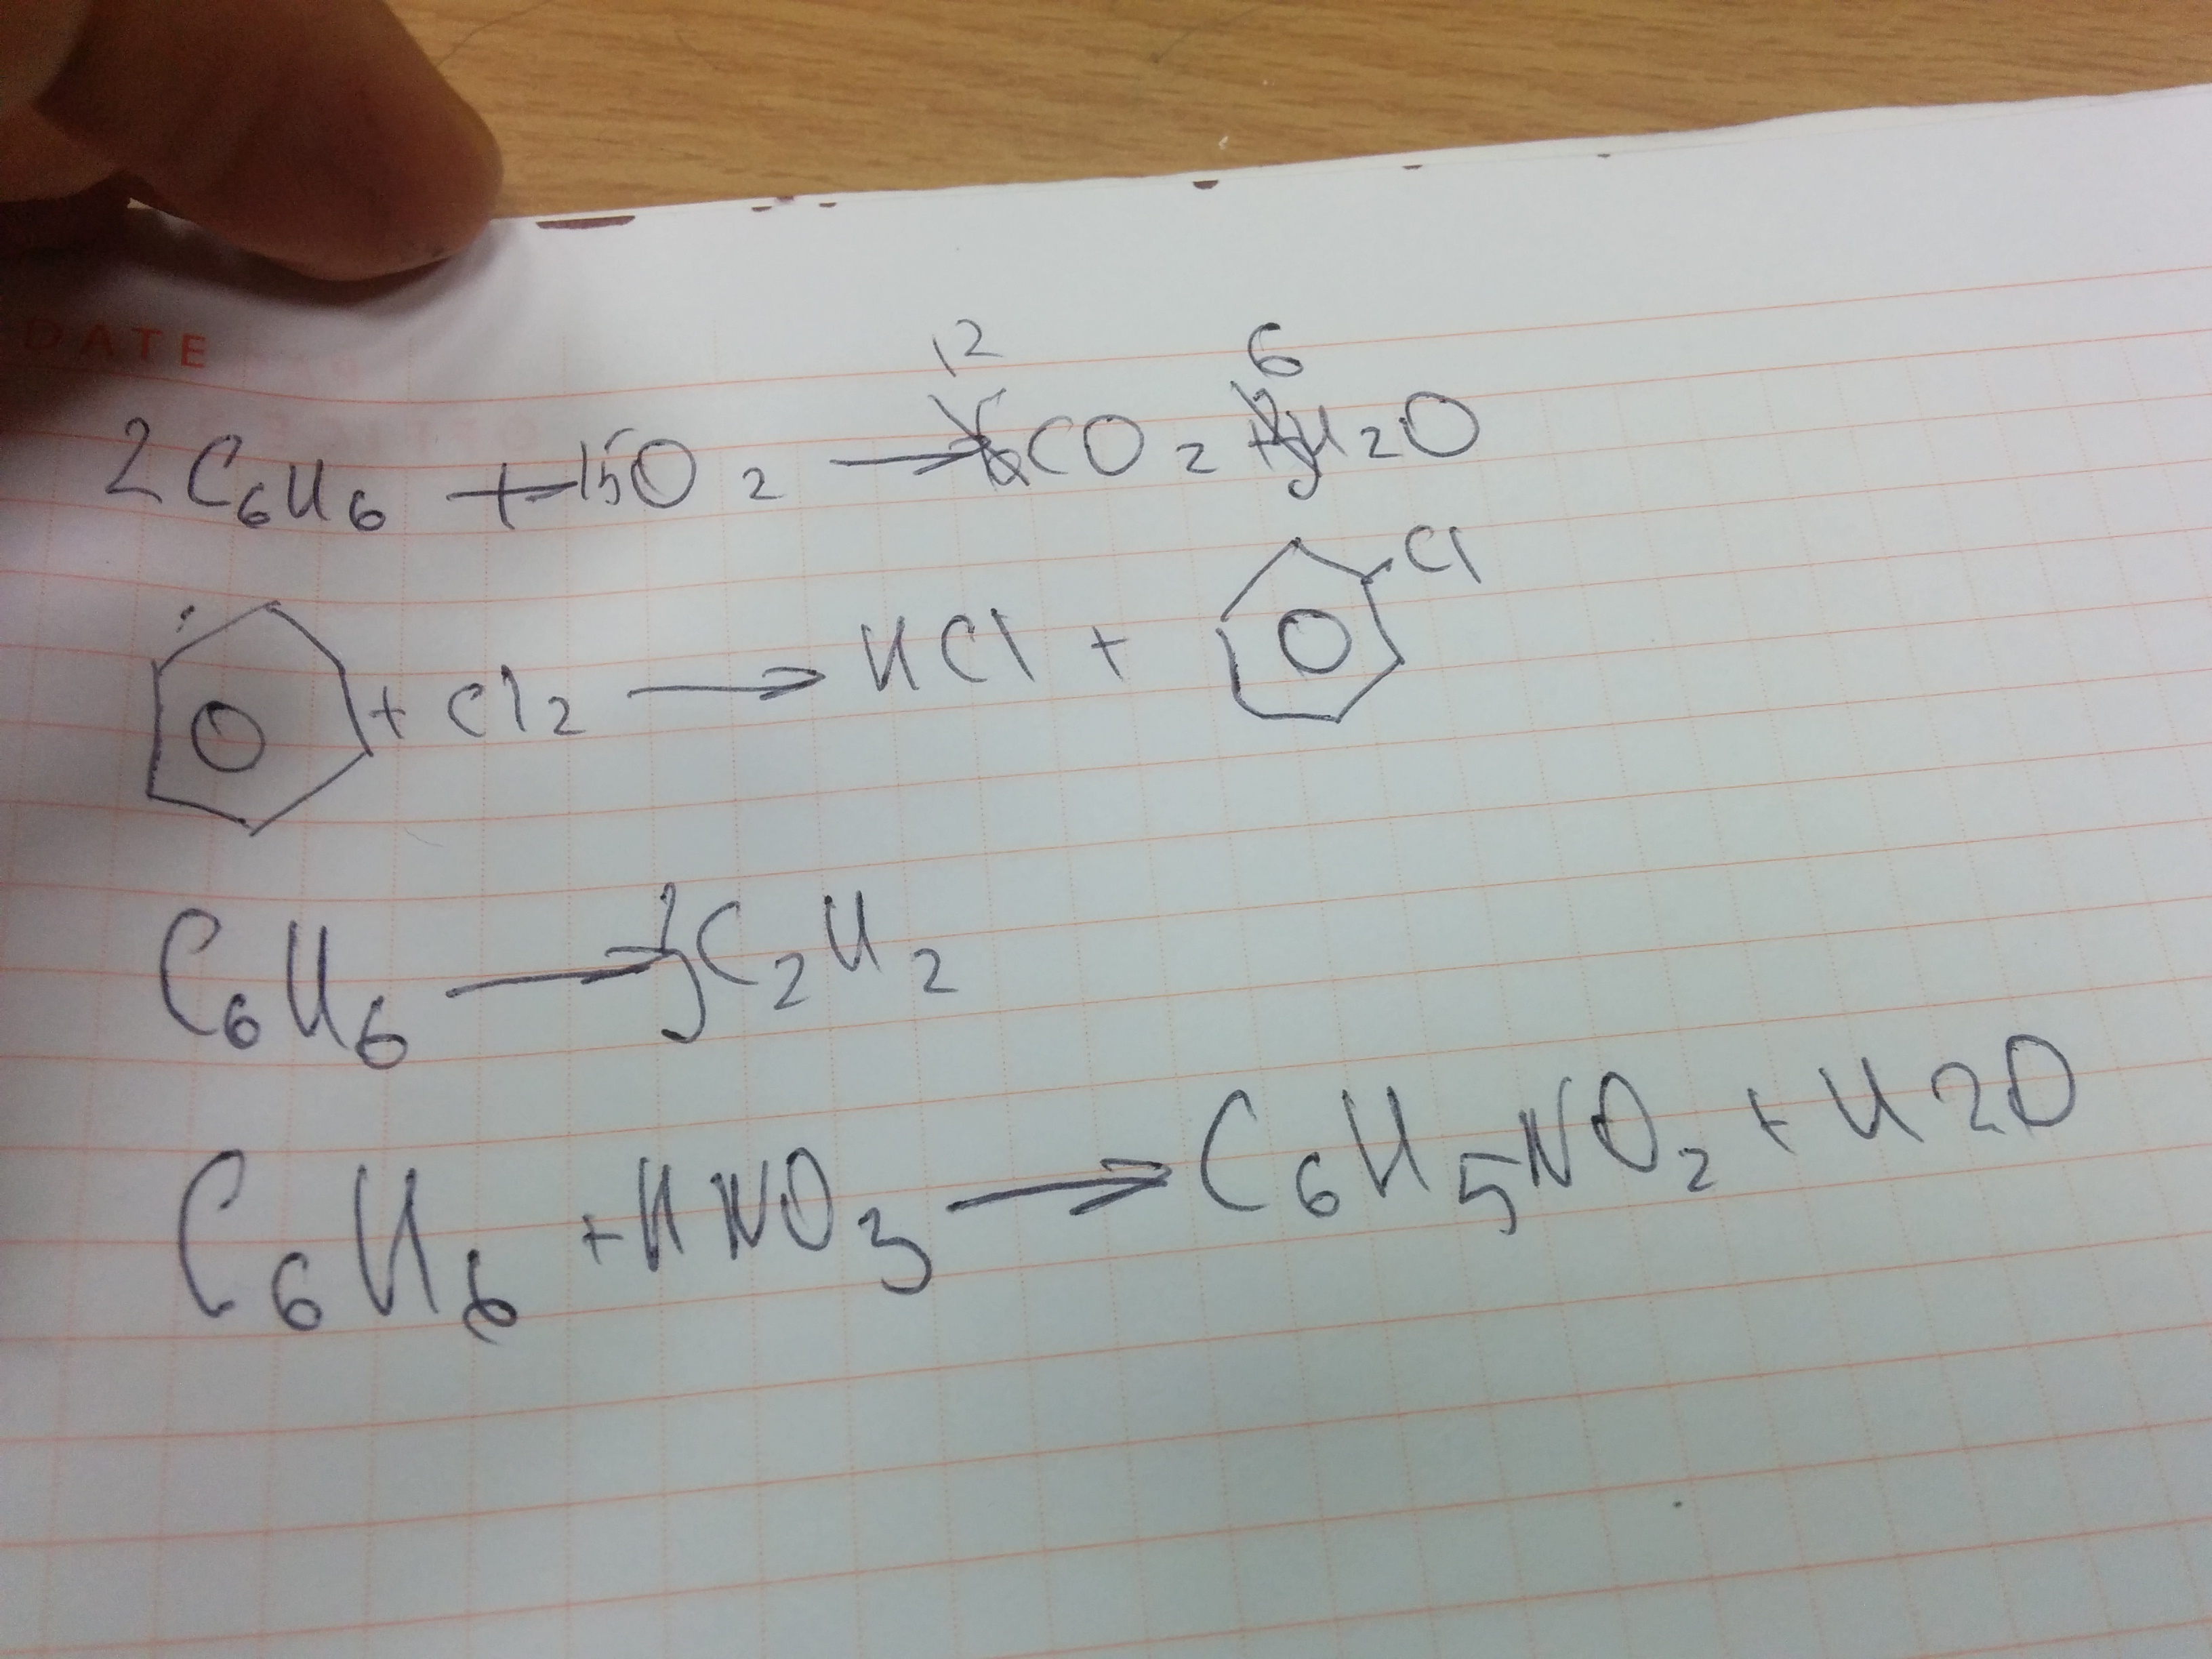 DATE
2C₆H₆ + 15O₂ → 12CO₂ + 6H₂O
+ Cl₂ → HCl + Cl
C₆H₆ → 3C₂H₂
C₆H₆ + HNO₃ → C₆H₅NO₂ + H2O